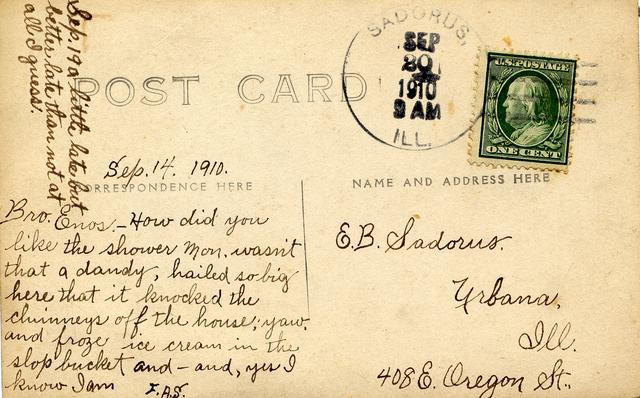 Sep. 19 a little late but
better late than not at
all I guess.
POST CARD
SADORUS,
SEP
20
1910
9 AM
ILL.
U.S. POSTAGE
ONE CENT
Sep. 14. 1910.
CORRESPONDENCE HERE
NAME AND ADDRESS HERE
Bro. Enos.- How did you
like the shower Mon, wasn't
that a dandy, hailed so big
here that it knocked the
chimneys off the house; yaw.
and froze ice cream in the
slop bucket and - and, yes I
know I am F.A.S.
E.B. Sadorus.
Urbana,
Ill.
408 E. Oregon St.,